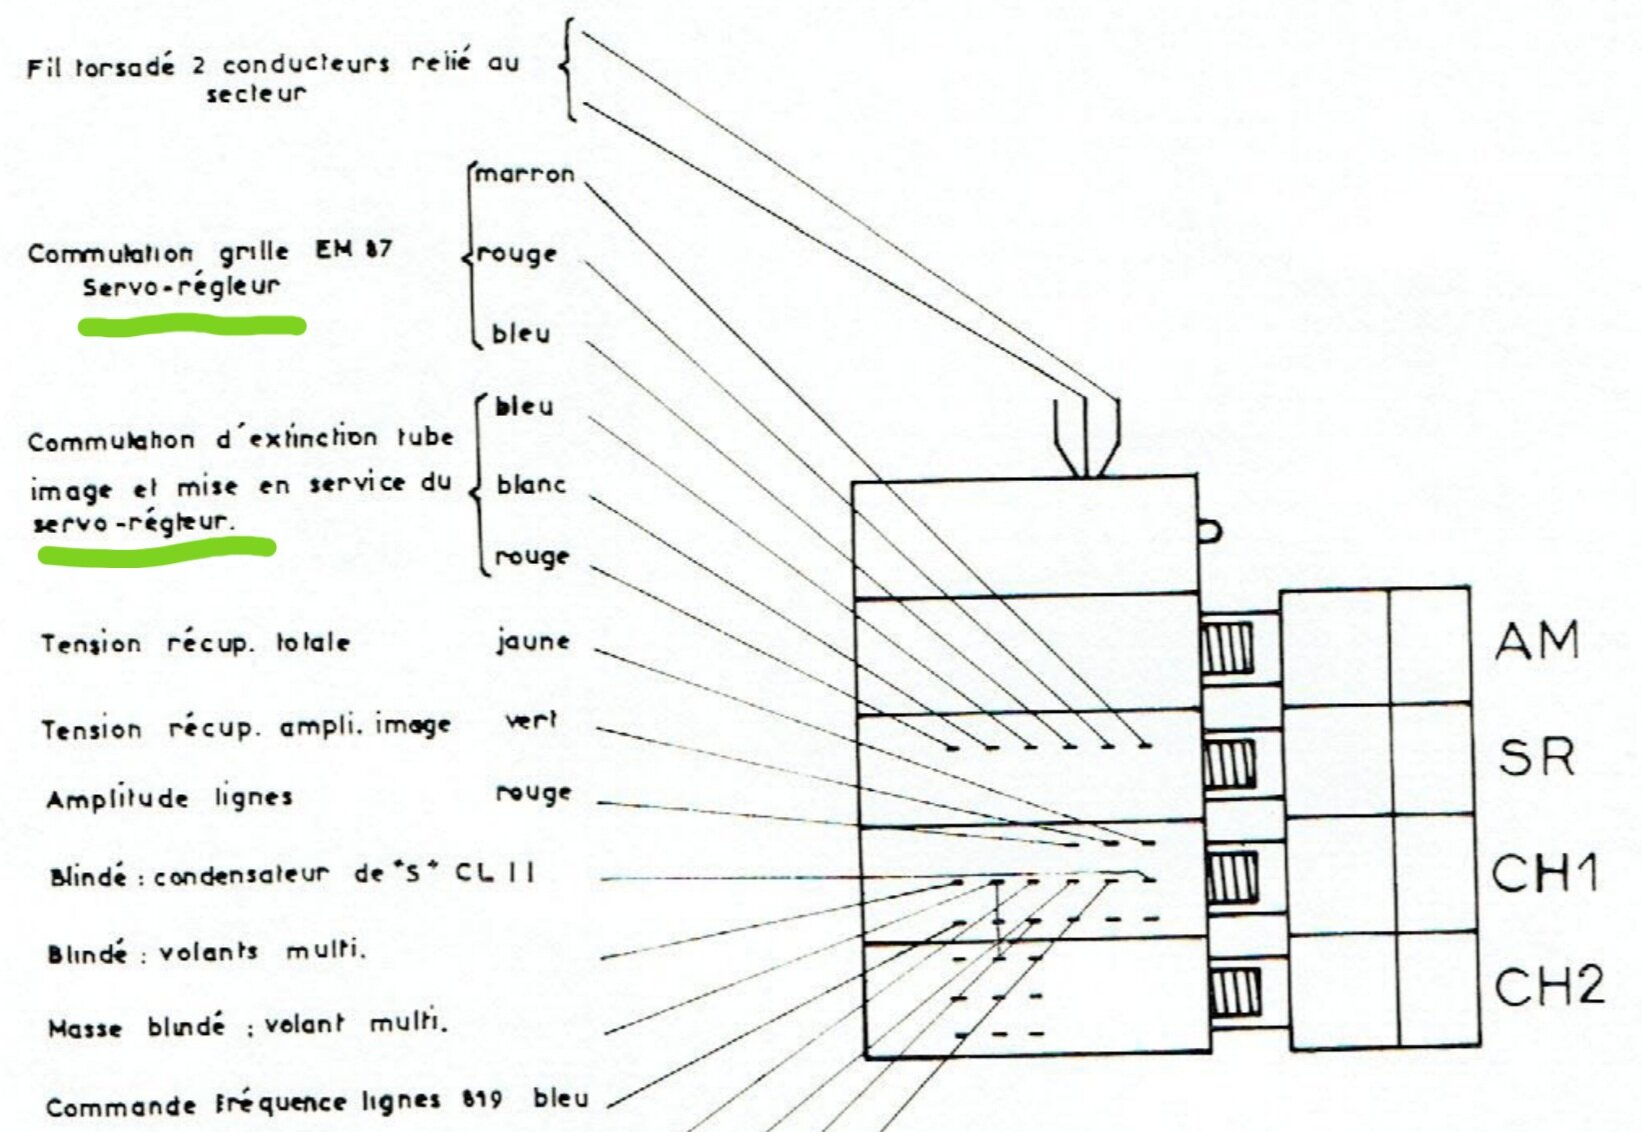 Fil torsadé 2 conducteurs relié au
secteur
marron
Commutation grille EM 87
rouge
Servo-régleur
bleu
bleu
Commutation d'extinction tube
image et mise en service du
blanc
servo-régleur.
rouge
Tension récup. totale jaune
Tension récup. ampli. image vert
Amplitude lignes rouge
Blindé : condensateur de "S" CL 11
Blindé : volants multi.
Masse blindé : volant multi.
Commande Fréquence lignes 819 bleu
AM
SR
CH1
CH2